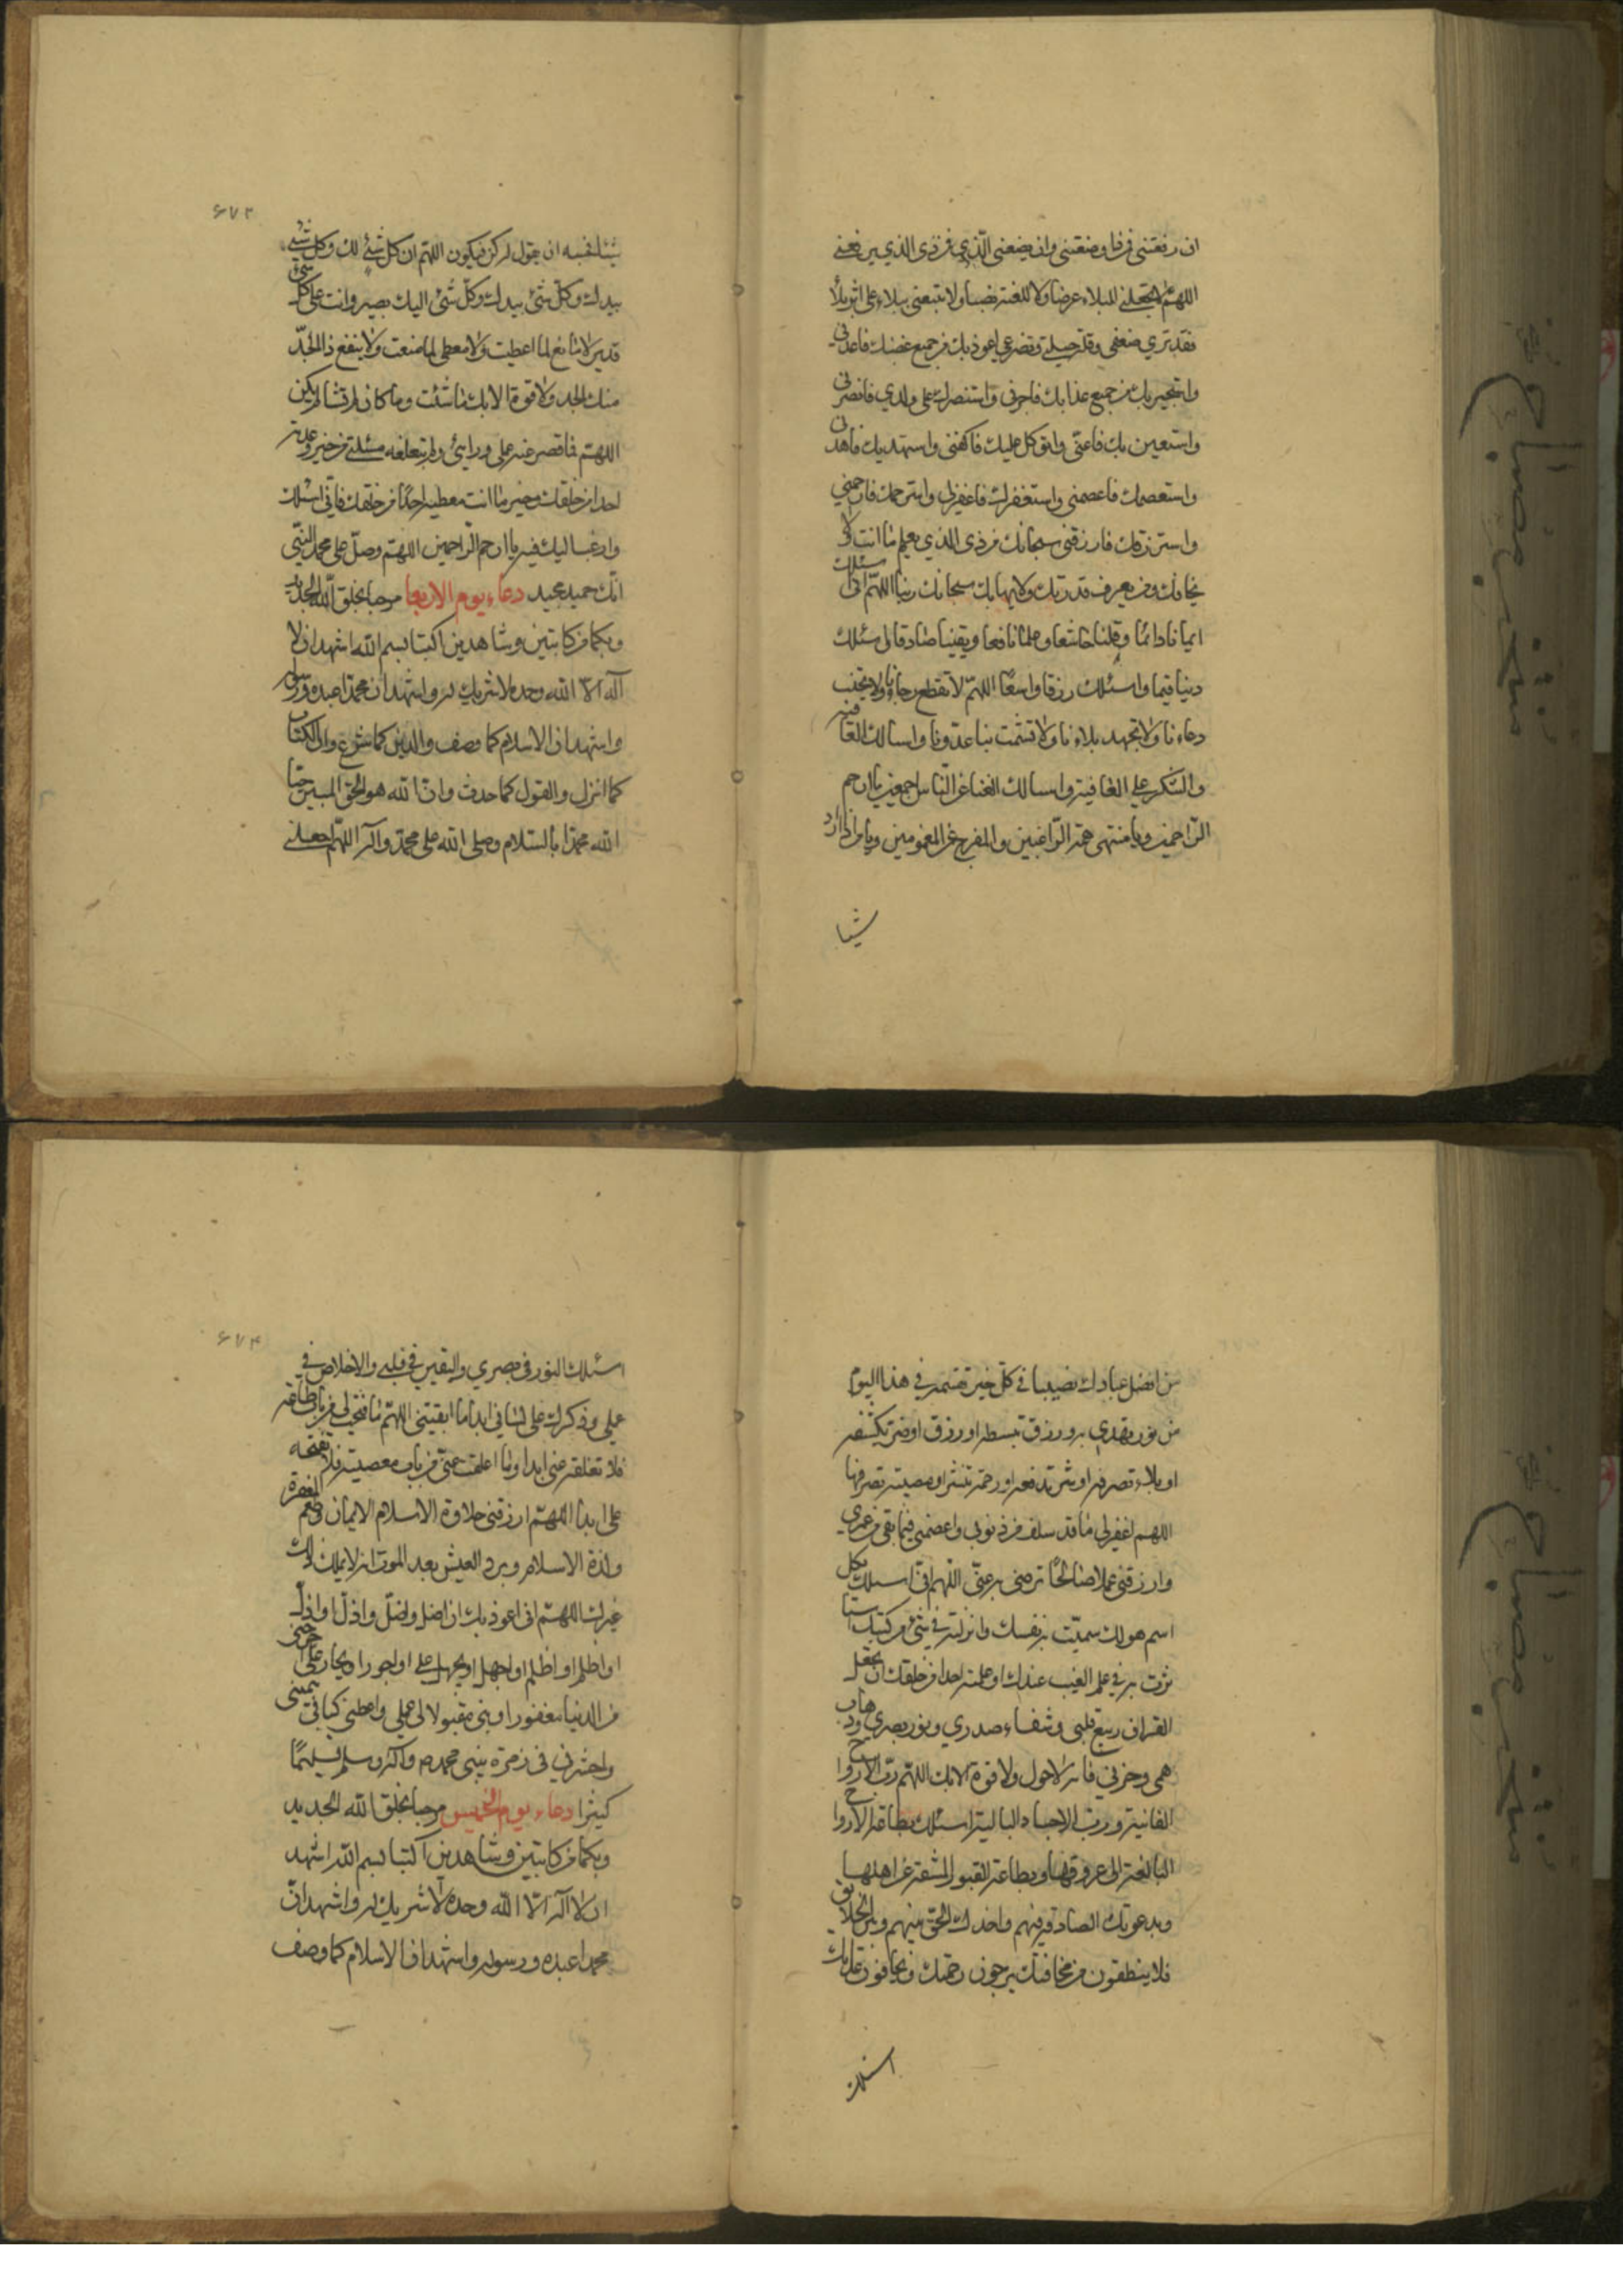 ان رفعتنی فمن ذا یضعنی وان یضعنی الذی فمن ذی الذی یرفعنی
اللهم لا تجعلنی للبلاء عرضا ولا للفتنه نصبا ولا تتبعنی ببلاء علی اثر بلاء
فقد تری ضعفی وقله حیلتی وتضرعی اعوذ بک من جمیع غضبک فاعذنی
واستجیر بک من جمیع عذابک فاجرنی واستنصرک علی عدوی فانصرنی
واستعین بک فاعنی واتوکل علیک فاکفنی واستهدیک فاهدنی
واستعصمک فاعصمنی واستغفرک فاغفر لی واسترحمک فارحمنی
واسترزقک فارزقنی سبحانک من ذی الذی یعلم ما انت ولا
یخافک ومن یعرف قدرتک ولا یهابک سبحانک ربنا اللهم انی اسئلک
ایمانا دائما وقلبا خاشعا وعلما نافعا ویقینا صادقا اسئلک
دینا قیما واسئلک رزقا واسعا اللهم لا تقطع رجاءنا ولا تخیب
دعاءنا ولا تجهد بلاءنا ولا تشمت بنا عدونا واسالک العافیه
والشکر علی العافیه واسالک الغنا عن الناس اجمعین یا ارحم
الراحمین ویا منتهی همه الراغبین والمفرج عن المغمومین ویا من اذا اراد
شیئا
۶۷۳
شیئا فحسبه ان یقول له کن فیکون اللهم ان کل شئ لک وکل شئ
بیدک وکل شئ بیدک وکل شئ الیک یصیر وانت علی کل شئ
قدیر لا مانع لما اعطیت ولا معطی لما منعت ولا ینفع ذا الجد
منک الجد ولا قوة الا بک ما شئت وما کان لم تشا لم یکن
اللهم فما قصر عنه عملی ورایی ولم تبلغه مسئلتی من خیر وعدته
احدا من خلقک وخیر ما انت معطیه احدا من خلقک فانی اسئلک
وارغب الیک فیه یا ارحم الراحمین اللهم وصل علی محمد النبی
انک حمید مجید دعاء یوم الاربعا مرحبا بخلق الله الجدید
وبکما من کاتبین وشاهدین اکتبا بسم الله اشهد ان لا
اله الا الله وحده لا شریک له واشهد ان محمدا عبده ورسوله
واشهد ان الاسلام کما وصف والدین کما شرع وان الکتاب
کما انزل والقول کما حدث وان الله هو الحق المبین حیا
الله محمدا بالسلام وصلی الله علی محمد واله اللهم اجعلنی
من افضل عبادک نصیبا فی کل خیر تقسمه فی هذا الیوم
من نور تهدی به ورزق تبسطه او رزق او ضر تکشفه
او بلاء تصرفه او شر تدفعه او رحمة تنشر او مصیبة تصرفها
اللهم اغفر لی ما قد سلف من ذنوبی واعصمنی فیما بقی من عمری
وارزقنی عملا صالحا ترضی به عنی اللهم انی اسئلک بکل
اسم هو لک سمیت به نفسک وانزلته فی شئ من کتبک استا
ثرت به فی علم الغیب عندک او علمته احدا من خلقک ان تجعل
القران ربیع قلبی وشفاء صدری ونور بصری وذهاب
همی وحزنی فانه لا حول ولا قوة الا بک اللهم رب الارواح
الفانیه ورب الاجساد البالیه اسئلک بطاقه الارواح
البالغه الی عروقها وبطاعه القبور المشقه عن اهلها
وبدعوتک الصادقه فیهم واخذک الحق بینهم وبین الخلایق
فلا ینطقون من مخافتک یرجون رحمتک ویخافون عذابک
اسئلک
۶۷۴
اسئلک النور فی بصری والیقین فی قلبی والاخلاص فی
عملی وذکرک علی لسانی ابدا ما ابقیتنی اللهم ما فتحت لی من باب طاعه
فلا تغلقه عنی ابدا وما اغلقت عنی من باب معصیه فلا تفتحه
علی ابدا اللهم ارزقنی حلاوة الاسلام الایمان وطعم المغفرة
ولذة الاسلام وبرد العیش بعد الموت انه لا یملک ذلک
غیرک اللهم انی اعوذ بک ان اضل واضل واذل او اذل
او اظلم او اظلم او اجهل او یجهل علی او اجور او یجار علی اخرجنی
من الدنیا مغفورا ذنبی مقبولا لی عملی واعطنی کتابی بیمینی
واحشرنی فی زمرة نبیی محمد ص واله وسلم تسلیما
کثیرا دعاء یوم الخمیس مرحبا بخلق الله الجدید
وبکما من کاتبین وشاهدین اکتبا بسم الله اشهد
ان لا اله الا الله وحده لا شریک له واشهد ان
محمدا عبده ورسوله واشهد ان الاسلام کما وصف